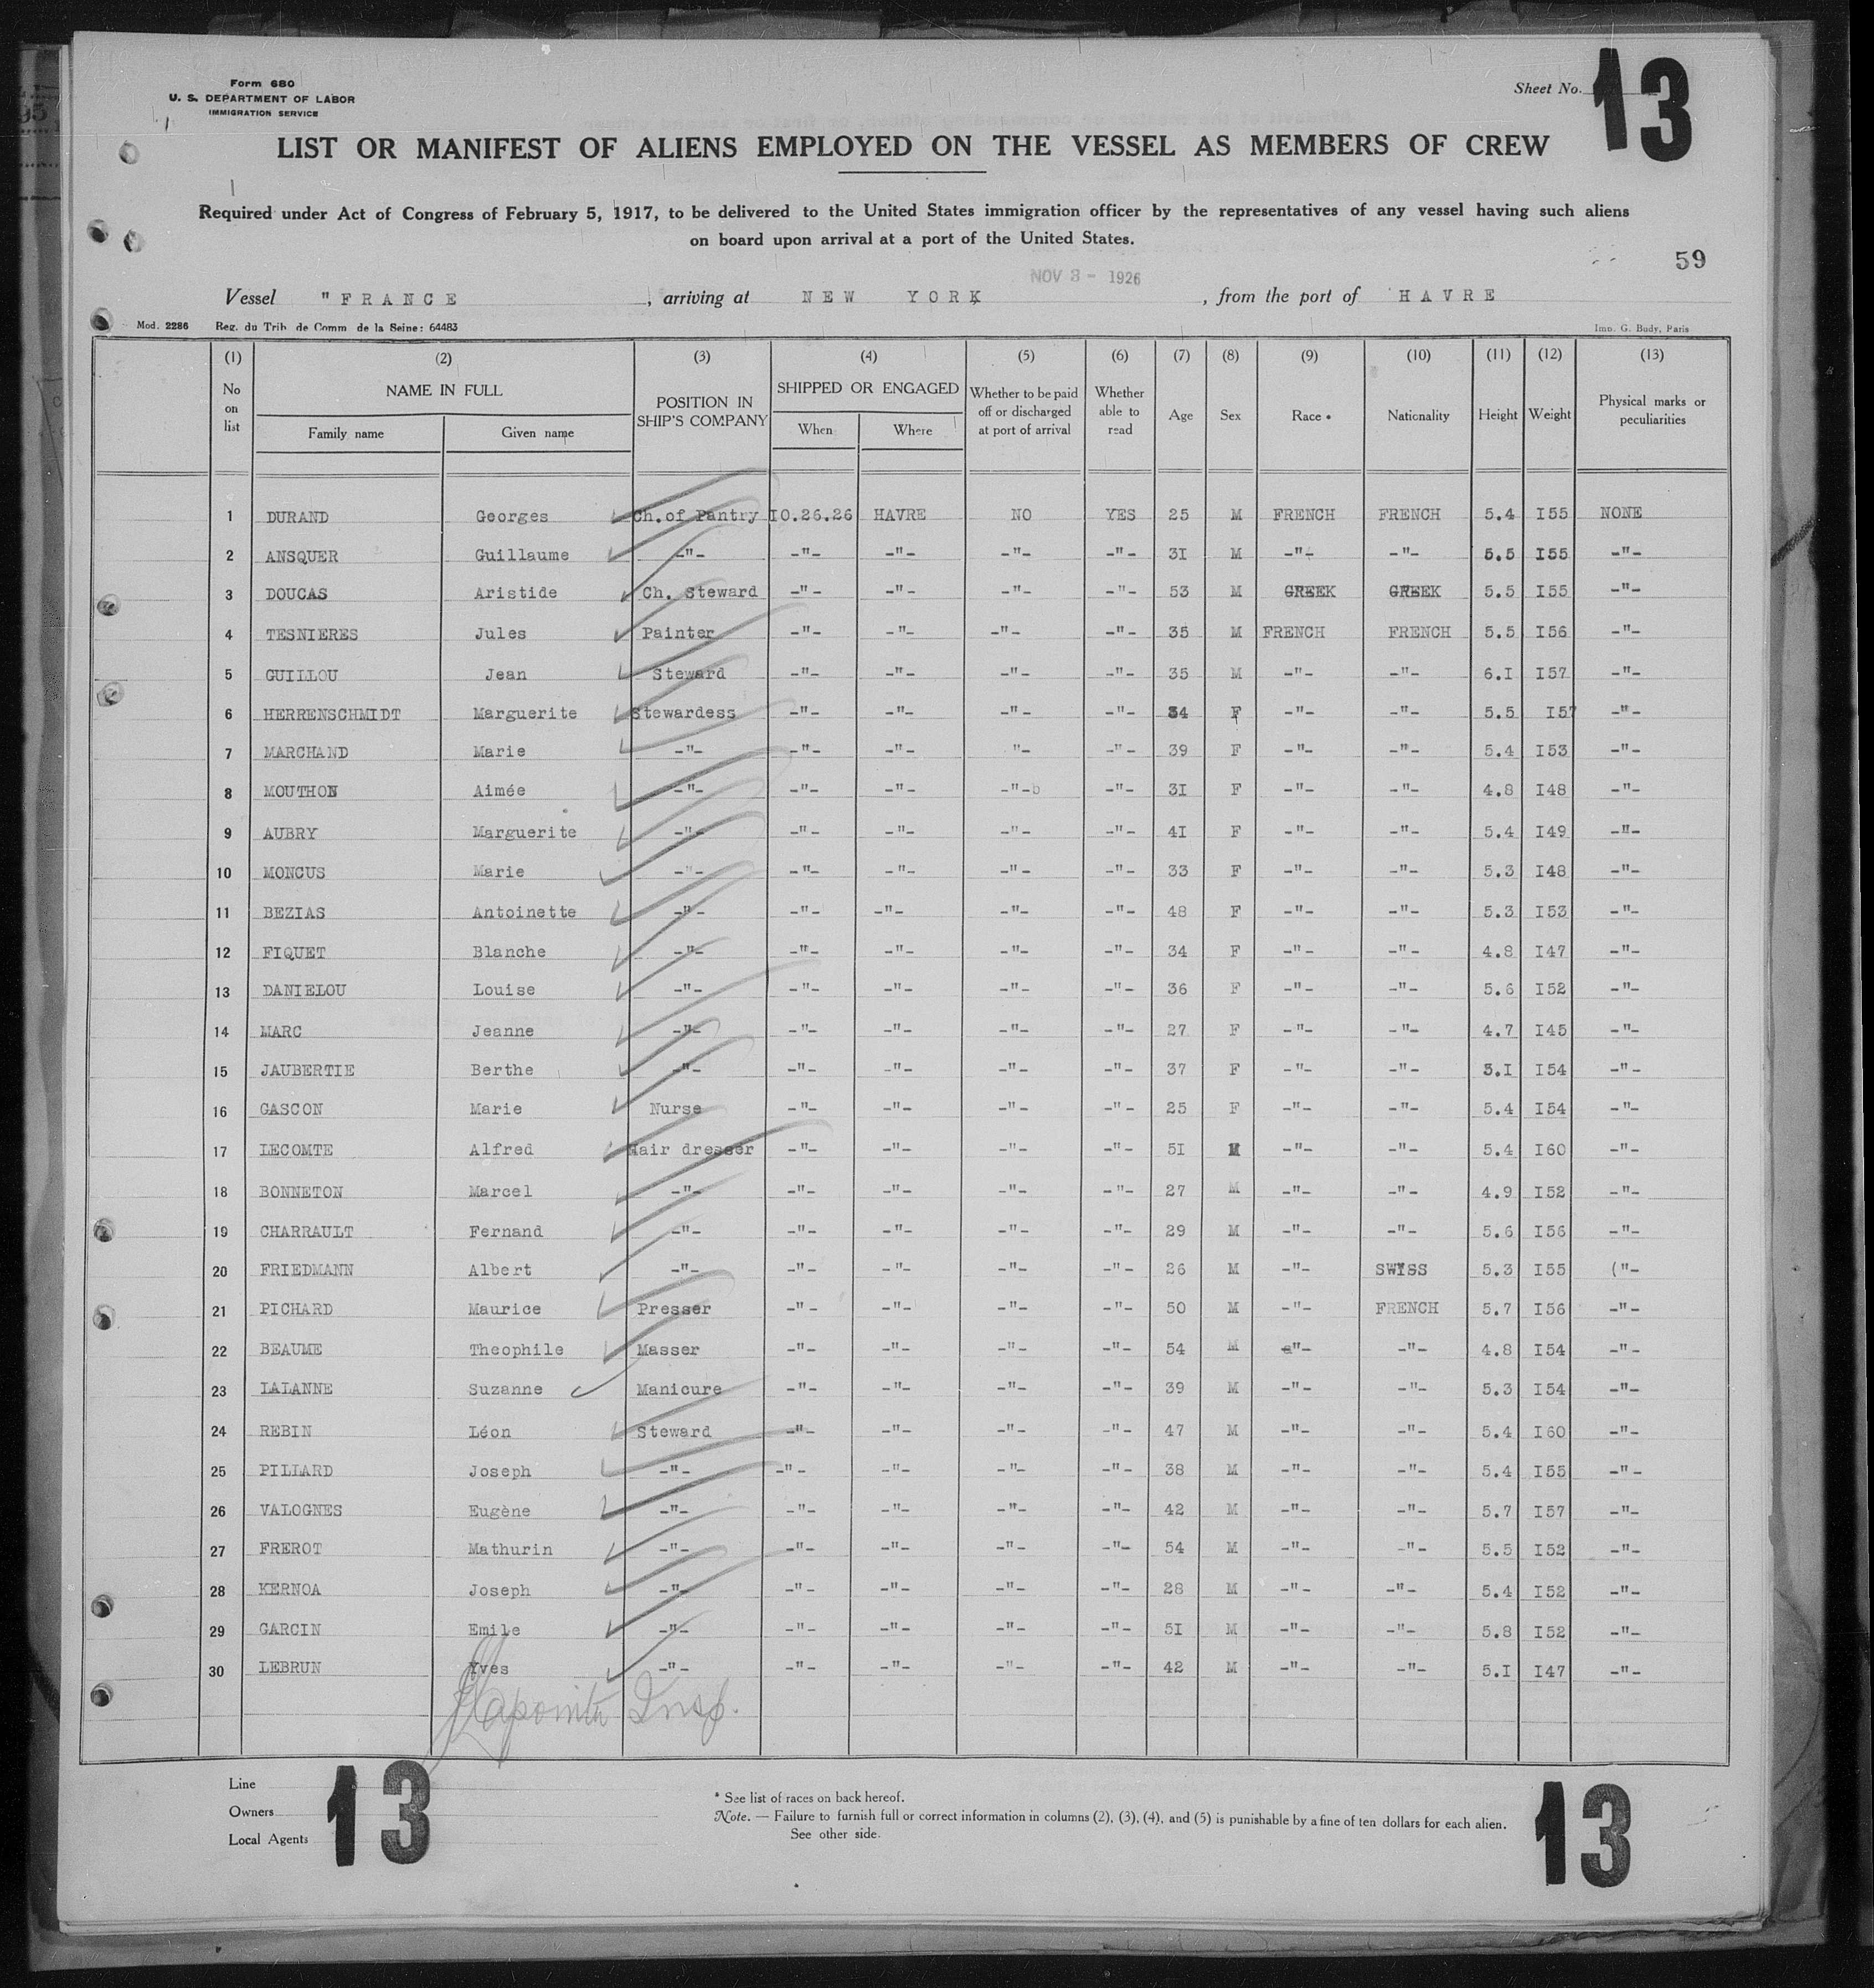 Form 680
U. S. DEPARTMENT OF LABOR
IMMIGRATION SERVICE
Sheet No. 13
LIST OR MANIFEST OF ALIENS EMPLOYED ON THE VESSEL AS MEMBERS OF CREW
Required under Act of Congress of February 5, 1917, to be delivered to the United States immigration officer by the representatives of any vessel having such aliens
on board upon arrival at a port of the United States.
59
NOV 3 - 1926
Vessel "FRANCE , arriving at NEW YORK , from the port of HAVRE
Mod. 2286 Reg. du Trib. de Comm. de la Seine: 64483 Imp. G. Budy, Paris
(1) (2) (3) (4) (5) (6) (7) (8) (9) (10) (11) (12) (13)
No on list NAME IN FULL Family name Given name POSITION IN SHIP'S COMPANY SHIPPED OR ENGAGED When Where Whether to be paid off or discharged at port of arrival Whether able to read Age Sex Race * Nationality Height Weight Physical marks or peculiarities
1 DURAND Georges Ch.of Pantry I0.26.26 HAVRE NO YES 25 M FRENCH FRENCH 5.4 I55 NONE
2 ANSQUER Guillaume -"- -"- -"- -"- -"- 3I M -"- -"- 5.5 I55 -"-
3 DOUCAS Aristide Ch. Steward -"- -"- -"- -"- 53 M GREEK GREEK 5.5 I55 -"-
4 TESNIERES Jules Painter -"- -"- -"- -"- 35 M FRENCH FRENCH 5.5 I56 -"-
5 GUILLOU Jean Steward -"- -"- -"- -"- 35 M -"- -"- 6.I I57 -"-
6 HERRENSCHMIDT Marguerite Stewardess -"- -"- -"- -"- 34 F -"- -"- 5.5 I57 -"-
7 MARCHAND Marie -"- -"- -"- "- -"- 39 F -"- -"- 5.4 I53 -"-
8 MOUTHON Aimée -"- -"- -"- -"-b -"- 3I F -"- -"- 4.8 I48 -"-
9 AUBRY Marguerite -"- -"- -"- -"- -"- 4I F -"- -"- 5.4 I49 -"-
10 MONCUS Marie -"- -"- -"- -"- -"- 33 F -"- -"- 5.3 I48 -"-
11 BEZIAS Antoinette -"- -"- -"- -"- -"- 48 F -"- -"- 5.3 I53 -"-
12 FIQUET Blanche -"- -"- -"- -"- -"- 34 F -"- -"- 4.8 I47 -"-
13 DANIELOU Louise -"- -"- -"- -"- -"- 36 F -"- -"- 5.6 I52 -"-
14 MARC Jeanne -"- -"- -"- -"- -"- 27 F -"- -"- 4.7 I45 -"-
15 JAUBERTIE Berthe -"- -"- -"- -"- -"- 37 F -"- -"- 5.I I54 -"-
16 GASCON Marie Nurse -"- -"- -"- -"- 25 F -"- -"- 5.4 I54 -"-
17 LECOMTE Alfred Hair dresser -"- -"- -"- -"- 5I M -"- -"- 5.4 I60 -"-
18 BONNETON Marcel -"- -"- -"- -"- -"- 27 M -"- -"- 4.9 I52 -"-
19 CHARRAULT Fernand -"- -"- -"- -"- -"- 29 M -"- -"- 5.6 I56 -"-
20 FRIEDMANN Albert -"- -"- -"- -"- -"- 26 M -"- SWISS 5.3 I55 ("-
21 PICHARD Maurice Presser -"- -"- -"- -"- 50 M -"- FRENCH 5.7 I56 -"-
22 BEAUME Theophile Masser -"- -"- -"- -"- 54 M -"- -"- 4.8 I54 -"-
23 LALANNE Suzanne Manicure -"- -"- -"- -"- 39 M -"- -"- 5.3 I54 -"-
24 REBIN Léon Steward -"- -"- -"- -"- 47 M -"- -"- 5.4 I60 -"-
25 PILLARD Joseph -"- -"- -"- -"- -"- 38 M -"- -"- 5.4 I55 -"-
26 VALOGNES Eugène -"- -"- -"- -"- -"- 42 M -"- -"- 5.7 I57 -"-
27 FREROT Mathurin -"- -"- -"- -"- -"- 54 M -"- -"- 5.5 I52 -"-
28 KERNOA Joseph -"- -"- -"- -"- -"- 28 M -"- -"- 5.4 I52 -"-
29 GARCIN Emile -"- -"- -"- -"- -"- 5I M -"- -"- 5.8 I52 -"-
30 LEBRUN Yves -"- -"- -"- -"- -"- 42 M -"- -"- 5.I I47 -"-
Insp.
Line
Owners
Local Agents
13
* See list of races on back hereof.
Note. — Failure to furnish full or correct information in columns (2), (3), (4), and (5) is punishable by a fine of ten dollars for each alien.
See other side.
13